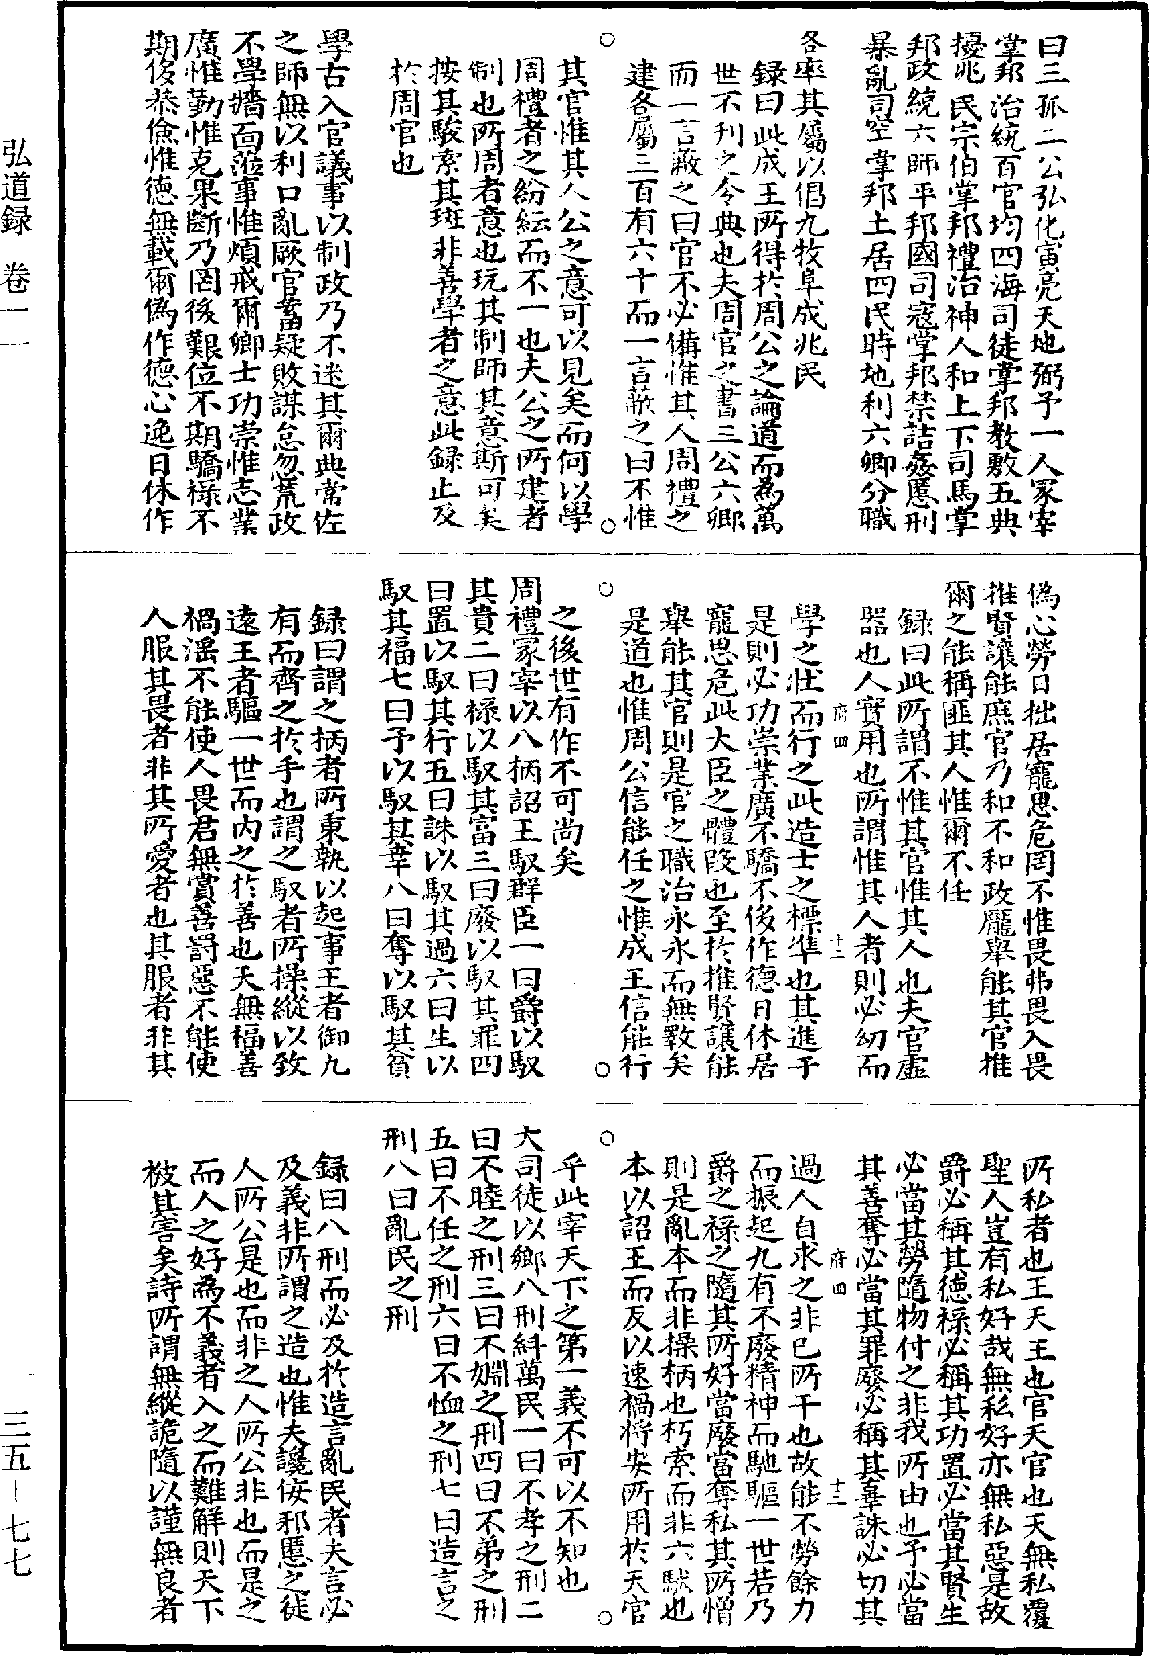 曰三孤二公弘化寅亮天地弼予一人冢宰
掌邦治統百官均四海司徒掌邦教敷五典
擾兆民宗伯掌邦禮治神人和上下司馬掌
邦政統六師平邦國司寇掌邦禁詰姦慝刑
暴亂司空掌邦土居四民時地利六卿分職
各率其屬以倡九牧阜成兆民
録曰此成王所得於周公之論道而爲萬
世不刊之令典也夫周官之書三公六卿
而一言蔽之曰官不必備惟其人周禮之
建各屬三百有六十而一言蔽之曰不惟
其官惟其人公之意可以見矣而何以學
周禮者之紛紜而不一也夫公之所建者
制也所周者意也玩其制師其意斯可矣
按其駿索其斑非善學者之意此録止及
於周官也
學古入官議事以制政乃不迷其爾典常佐
之師無以利口亂厥官蓄疑敗謀怠忽荒政
不學牆面蒞事惟煩戒爾卿士功崇惟志業
廣惟勤惟克果斷乃罔後艱位不期驕祿不
期侈恭儉惟德無載爾僞作德心逸日休作
僞心勞日拙居寵思危罔不惟畏弗畏入畏
推賢讓能庶官乃和不和政龐舉能其官推
爾之能稱匪其人惟爾不任
録曰此所謂不惟其官惟其人也夫官虛
器也人實用也所謂惟其人者則必幼而
學之壯而行之此造士之標準也其進于
是則必功崇業廣不驕不侈作德日休居
寵思危此大臣之體段也至於推賢讓能
舉能其官則是官之職治永永而無斁矣
是道也惟周公信能任之惟成王信能行
之後世有作不可尚矣
周禮冢宰以八柄詔王馭群臣一曰爵以馭
其貴二曰祿以馭其富三曰廢以馭其罪四
曰置以馭其行五曰誅以馭其過六曰生以
馭其福七曰予以馭其幸八曰奪以馭其貧
録曰謂之柄者所秉執以起事王者御九
有而齊之於手也謂之馭者所操縱以致
遠王者驅一世而内之於善也天無福善
禍淫不能使人畏君無賞善罰惡不能使
人服其畏者非其所愛者也其服者非其
所私者也王天王也官天官也天無私覆
聖人豈有私好哉無私好亦無私惡是故
爵必稱其德祿必稱其功置必當其賢生
必當其勞隨物付之非我所由也予必當
其善奪必當其罪廢必稱其辜誅必切其
過人自求之非已所干也故能不勞餘力
而振起九有不廢精神而馳驅一世若乃
爵之祿之隨其所好當廢當奪私其所憎
則是亂本而非操柄也朽索而非六馭也
本以詔王而反以速禍將安所用於天官
乎此宰天下之第一義不可以不知也
大司徒以鄉八刑糾萬民一曰不孝之刑二
曰不睦之刑三曰不婣之刑四曰不弟之刑
五曰不任之刑六曰不恤之刑七曰造言之
刑八曰亂民之刑
録曰八刑而必及於造言亂民者夫言必
及義非所謂之造也惟夫讒佞邪慝之徒
人所公是也而非之人所公非也而是之
而人之好爲不義者入之而難解則天下
被其害矣詩所謂無縱詭隨以謹無良者
府四
十二
府四
十三
弘道録 卷一
三五–七七